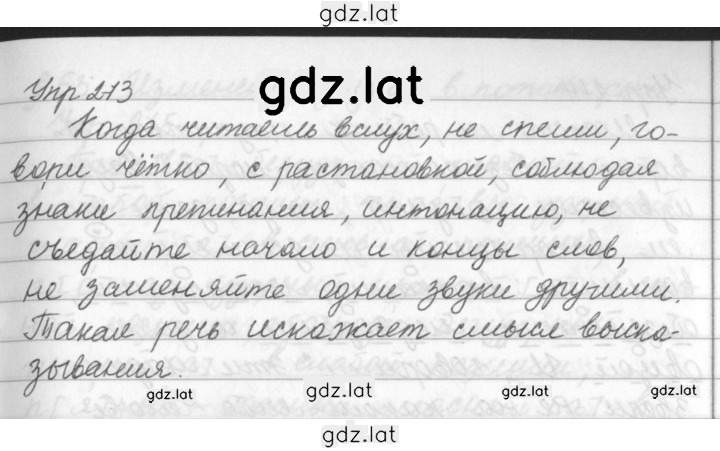 gdz.lat
Упр 213
gdz.lat
Когда читаешь вслух, не спеши, го-
вори чётко, с растановкой, соблюдая
знаки препинания, интонацию, не
съедайте начало и концы слов,
не заменяйте одни звуки другими.
Такая речь искажает смысл выска-
зывания.
gdz.lat gdz.lat gdz.lat gdz.lat
gdz.lat